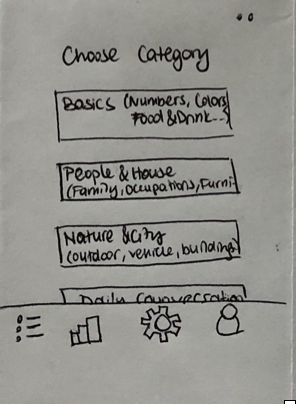 Choose Category
Basics (Numbers, Colors,
Food & Drink...)
People & House
(Family, Occupations, Furni
Nature & City
(outdoor, vehicle, buildings)
Daily Conversation